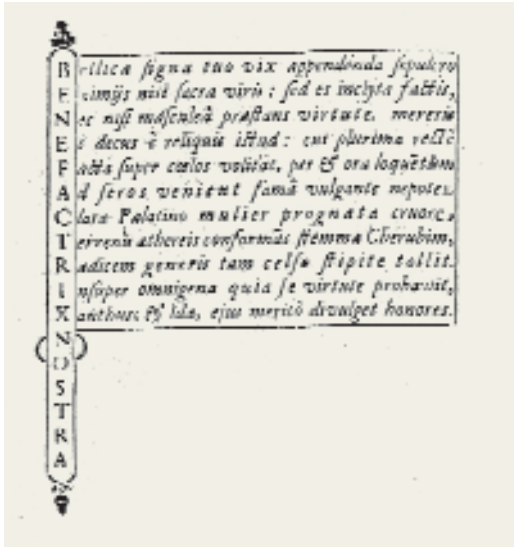 Bellica signa tuo vix appendenda sepulcro
Eximijs nisi sacra viris : sed es inclyta factis,
Nec nisi masculeâ præstans virtute. mereris
Ei decus è reliquis istud : cui plurima rectè
Facta super cœlos volitât, per & ora loquētum
Ad seros venient famâ vulgante nepotes.
Clara Palatino mulier prognata cruore,
athereis conformās stemma Cherubim,
Radicem generis tam celso stipite tollit.
Insuper omnigena quia se virtute probavit,
Xanthus, & Ida, ejus meritò divulget honores.
N
O
S
T
R
A